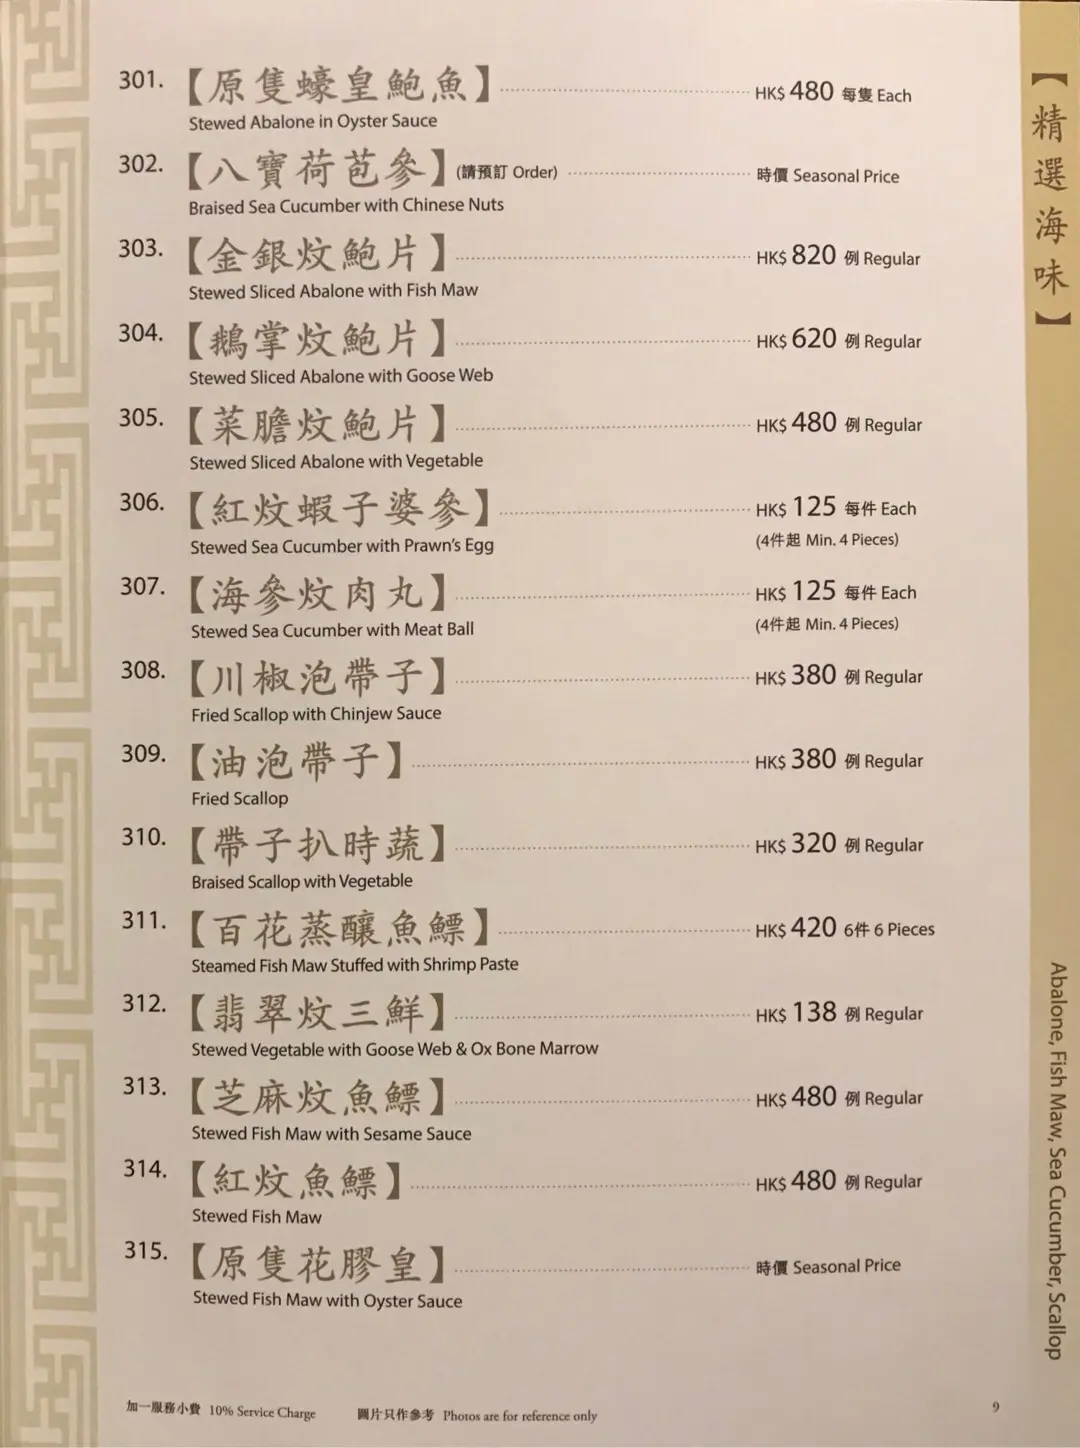 301. 【原隻蠔皇鮑魚】 HK$ 480 每隻 Each
Stewed Abalone in Oyster Sauce
302. 【八寶荷苞參】 (請預訂 Order) 時價 Seasonal Price
Braised Sea Cucumber with Chinese Nuts
303. 【金銀炆鮑片】 HK$ 820 例 Regular
Stewed Sliced Abalone with Fish Maw
304. 【鵝掌炆鮑片】 HK$ 620 例 Regular
Stewed Sliced Abalone with Goose Web
305. 【菜膽炆鮑片】 HK$ 480 例 Regular
Stewed Sliced Abalone with Vegetable
306. 【紅炆蝦子婆參】 HK$ 125 每件 Each
Stewed Sea Cucumber with Prawn's Egg (4件起 Min. 4 Pieces)
307. 【海參炆肉丸】 HK$ 125 每件 Each
Stewed Sea Cucumber with Meat Ball (4件起 Min. 4 Pieces)
308. 【川椒泡帶子】 HK$ 380 例 Regular
Fried Scallop with Chinjew Sauce
309. 【油泡帶子】 HK$ 380 例 Regular
Fried Scallop
310. 【帶子扒時蔬】 HK$ 320 例 Regular
Braised Scallop with Vegetable
311. 【百花蒸釀魚鰾】 HK$ 420 6件 6 Pieces
Steamed Fish Maw Stuffed with Shrimp Paste
312. 【翡翠炆三鮮】 HK$ 138 例 Regular
Stewed Vegetable with Goose Web & Ox Bone Marrow
313. 【芝麻炆魚鰾】 HK$ 480 例 Regular
Stewed Fish Maw with Sesame Sauce
314. 【紅炆魚鰾】 HK$ 480 例 Regular
Stewed Fish Maw
315. 【原隻花膠皇】 時價 Seasonal Price
Stewed Fish Maw with Oyster Sauce
加一服務小費 10% Service Charge 圖片只作參考 Photos are for reference only 9
【精選海味】
Abalone, Fish Maw, Sea Cucumber, Scallop